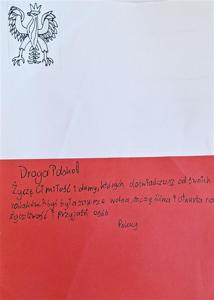 Droga Polsko!
Życzę Ci miłość i dumy, których doświadczasz od swoich
rodaków. Abyś była zawsze wolna, szczęśliwa i otwarta na
życzliwość i przyjaźń osób
Polacy